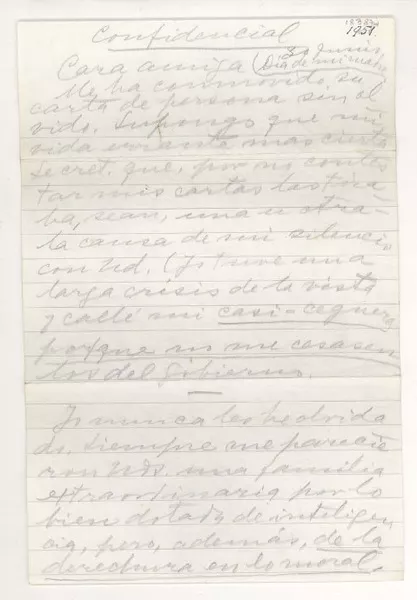 1951.
Confidencial
30 Junio,
Cara amiga (Día de mi
Me ha conmovido su
carta de persona sin ol
vido. Supongo que mi
vida errante, mas cierta
secret. que, por no contes
tar mis cartas las tira
ba, sean, una u otra
la causa de mi silencio
con Ud. (Yo tuve una
larga crisis de la vista
y callé mi casi-ceguera
porque no me cesasen
los del Gobierno.
Yo nunca les he olvida
do. Siempre me parecie
ron Uds. una familia
extraordinaria por lo
bien dotada de inteligen
cia, pero, además, de la
derechura en lo moral.